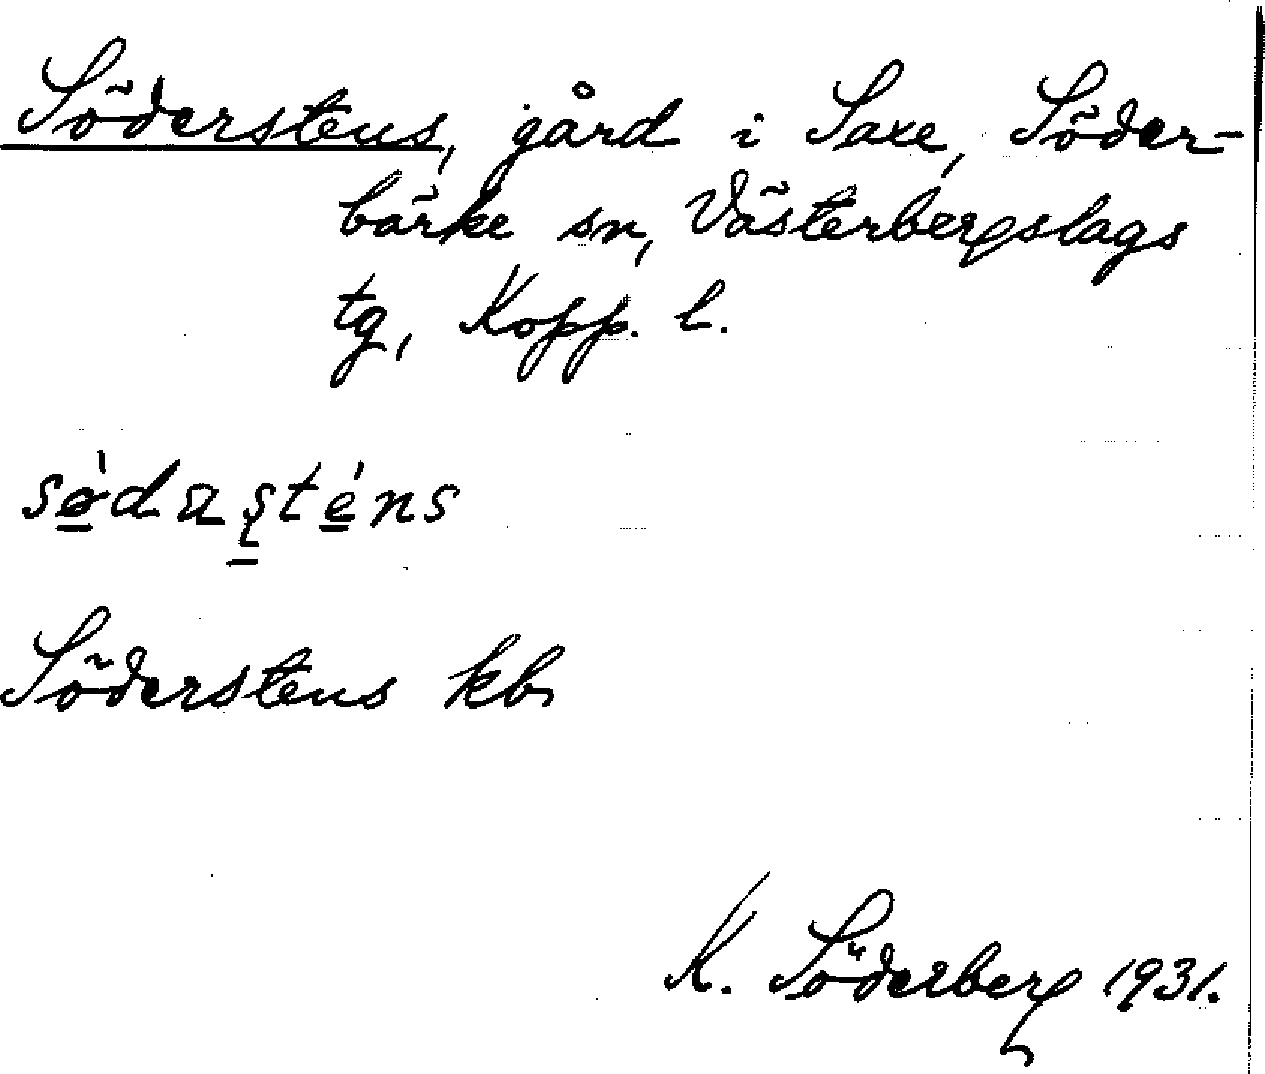 Söderstens, gård i Saxe, Söder-
bärke sn, Västerbergslags
tg, Kopp. l.
Söderstens kb
K. Söderberg 1931.